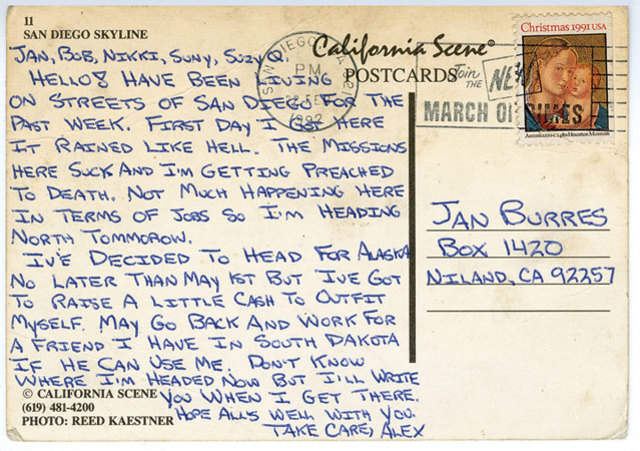 11
SAN DIEGO SKYLINE
JAN, BOB, NIKKI, SUNY, SUZY Q.
HELLO! HAVE BEEN LIVING
ON STREETS OF SAN DIEGO FOR THE
PAST WEEK. FIRST DAY I GOT HERE
IT RAINED LIKE HELL. THE MISSIONS
HERE SUCK AND I'M GETTING PREACHED
TO DEATH. NOT MUCH HAPPENING HERE
IN TERMS OF JOBS SO I'M HEADING
NORTH TOMMOROW.
IV'E DECIDED TO HEAD FOR ALASKA
NO LATER THAN MAY 1ST BUT IVE GOT
TO RAISE A LITTLE CASH TO OUTFIT
MYSELF. MAY GO BACK AND WORK FOR
A FRIEND I HAVE IN SOUTH DAKOTA
IF HE CAN USE ME. DON'T KNOW
WHERE I'M HEADED NOW BUT I'LL WRITE
YOU WHEN I GET THERE.
HOPE ALLS WELL WITH YOU
TAKE CARE, ALEX
© CALIFORNIA SCENE
(619) 481-4200
PHOTO: REED KAESTNER
California Scene®
POSTCARDS
SAN DIEGO
PM
1992
Join
THE NEW
MARCH OF DIMES
Christmas 1991 USA
JAN BURRES
BOX 1420
NILAND, CA 92257